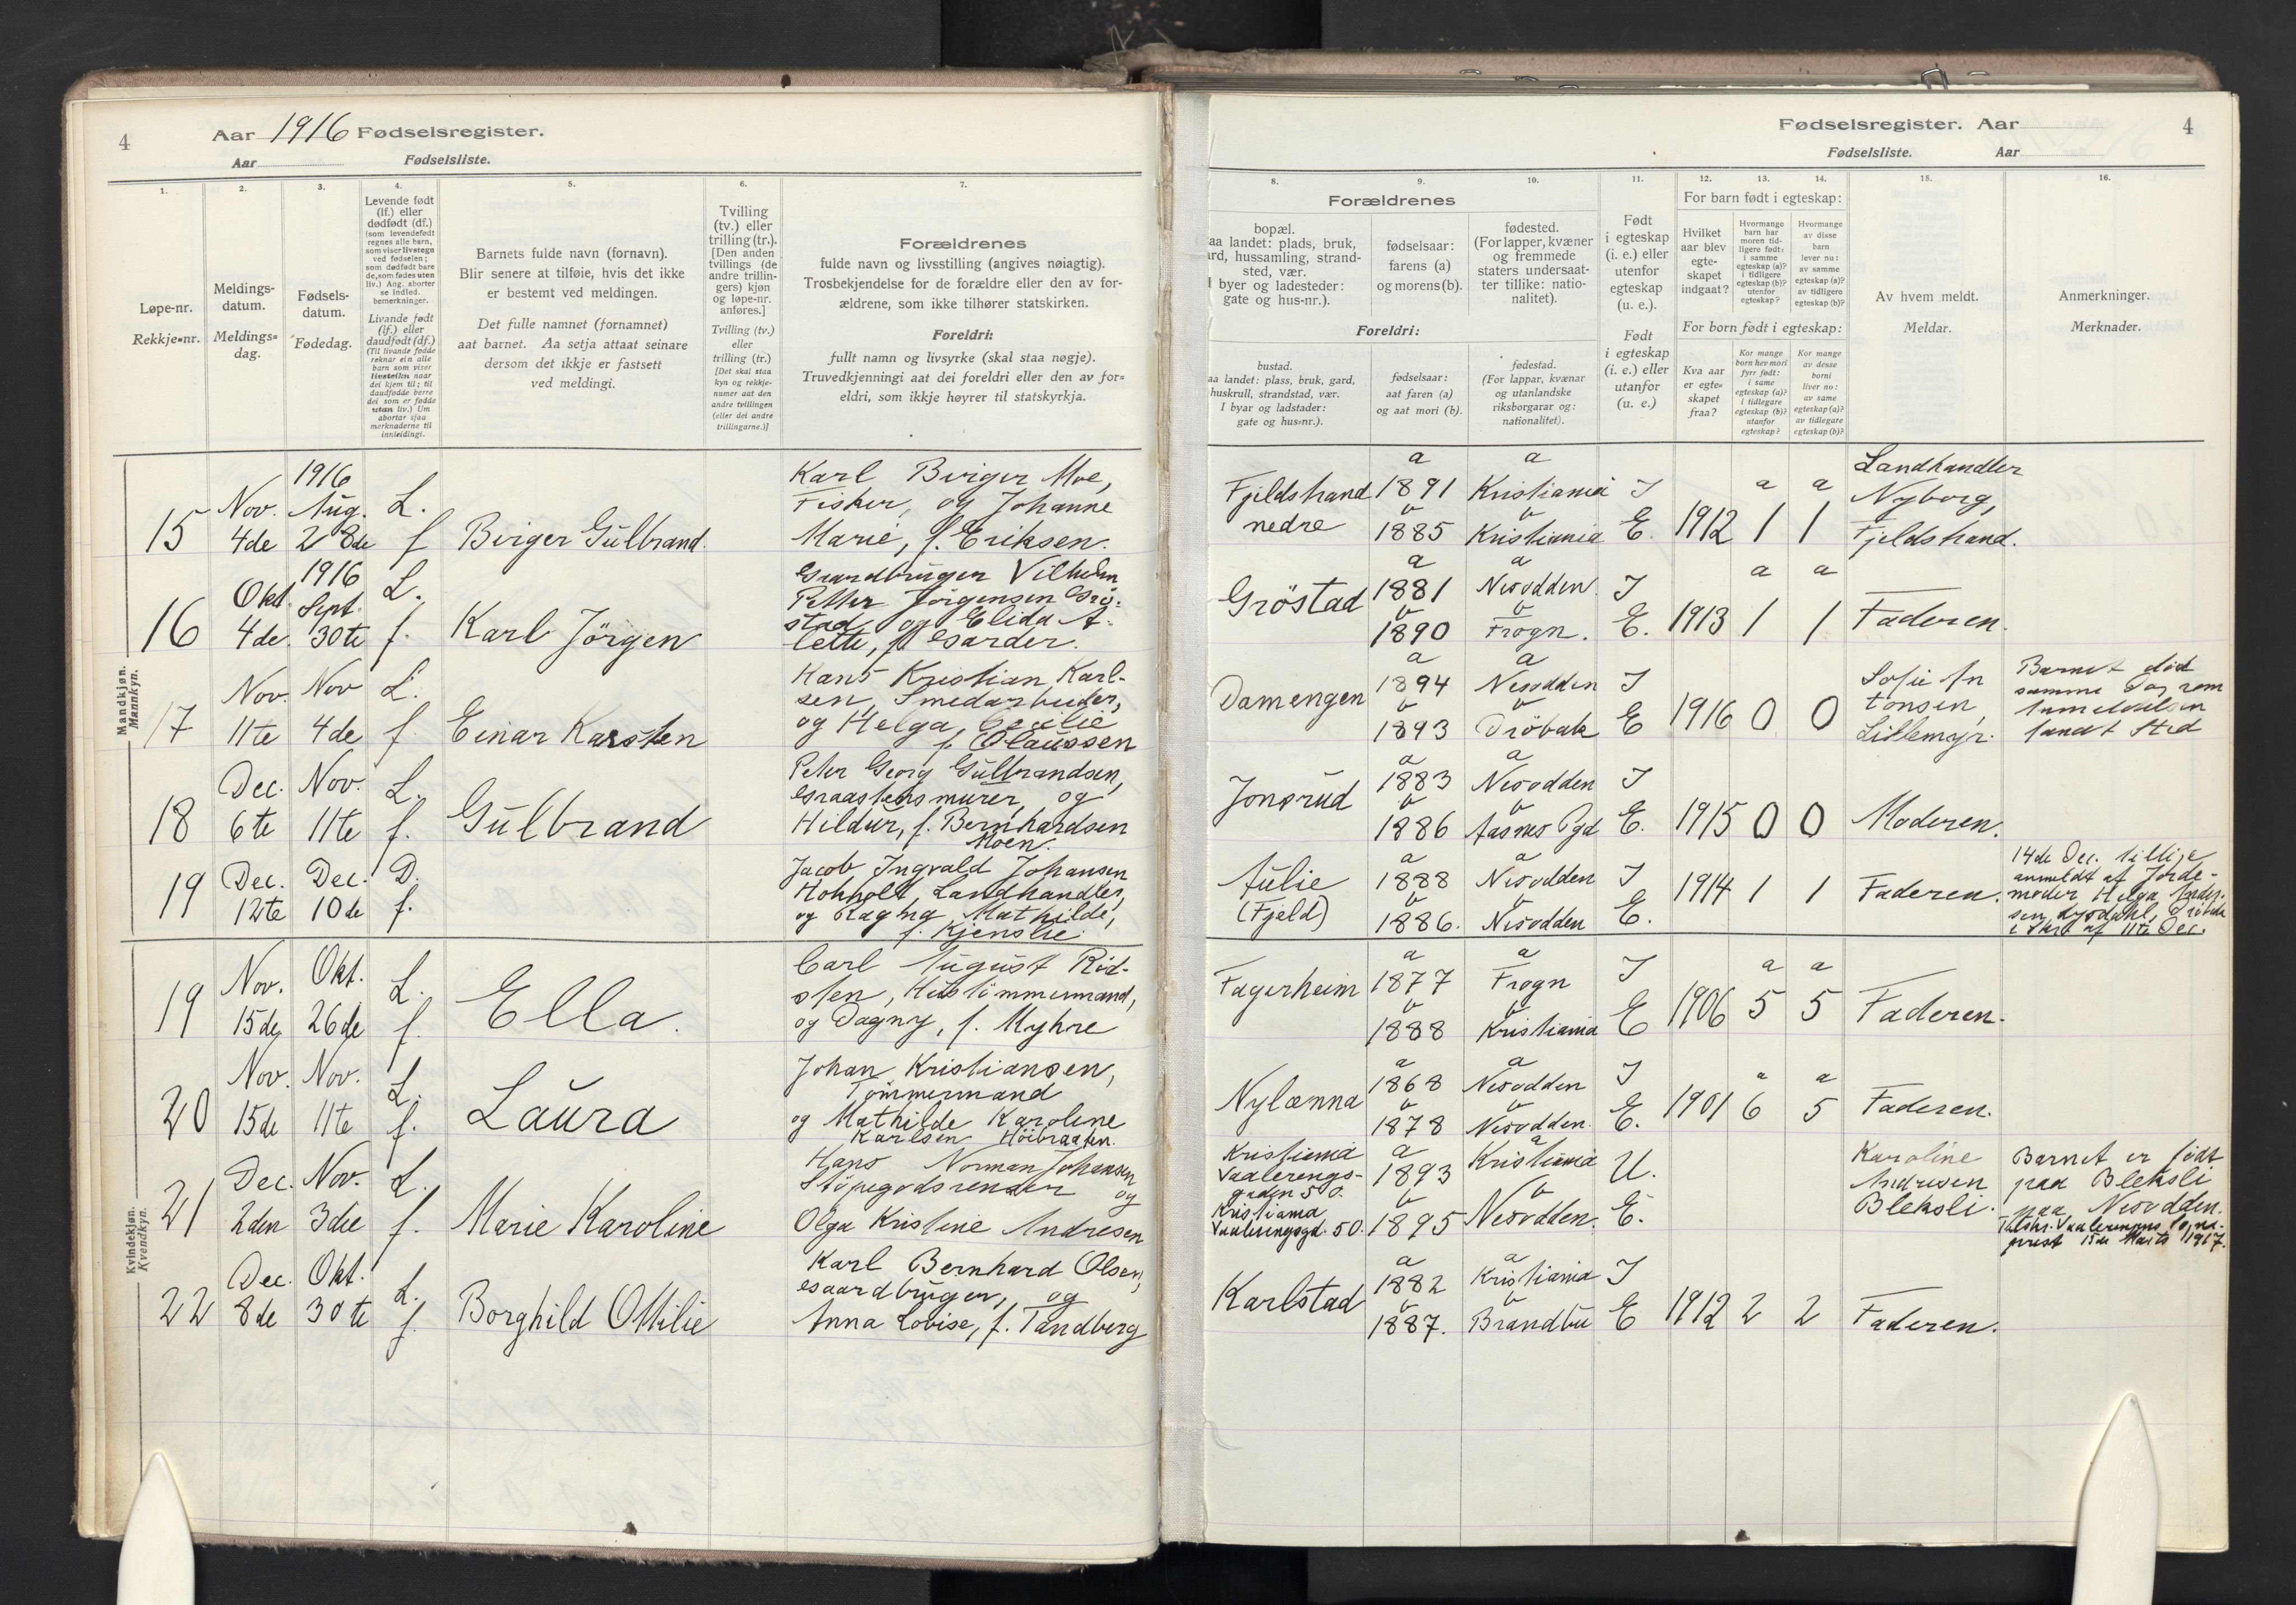 4
Aar 1916 Fødselsregister.
Aar
Fødselsliste.
1.
2.
3.
4.
5.
6.
7.
Løpe-nr.
Rekkje=nr.
Meldings-
datum.
Meldings=
dag.
Fødsels-
datum.
Fødedag.
Levende født
(lf.) eller
dødfødt (df.)
(som levendefødt
regnes alle barn,
som viser livstegn
ved fødselen;
som dødfødt bare
de, som fødes uten
liv.) Ang. aborter
se indled.
bemerkninger.
Livande født
(lf.) eller
daudfødt (df.)
(Til livande fødde
reknar ein alle
barn som viser
livsteikn naar
dei kjem til; til
daudfødde berre
dei som er fødde
utan liv.) Um
abortar sjaa
merknaderne til
innleidingi.
Barnets fulde navn (fornavn).
Blir senere at tilføie, hvis det ikke
er bestemt ved meldingen.
Det fulle namnet (fornamnet)
aat barnet. Aa setja attaat seinare
dersom det ikkje er fastsett
ved meldingi.
Tvilling
(tv.) eller
trilling (tr.).
[Den anden
tvillings (de
andre trillin-
gers) kjøn
og løpe-nr.
anføres.]
Tvilling (tv.)
eller
trilling (tr.)
[Det skal staa
kyn og rekkje-
numer aat den
andre tvillingen
(eller dei andre
trillingarne.)]
Forældrenes
fulde navn og livsstilling (angives nøiagtig).
Trosbekjendelse for de forældre eller den av for-
ældrene, som ikke tilhører statskirken.
Foreldri:
fullt namn og livsyrke (skal staa nøgje).
Truvedkjenningi aat dei foreldri eller den av for=
eldri, som ikkje høyrer til statskyrkja.
Mandkjøn.
Mannkyn.
15
Nov.
4de
1916
Aug.
28de
L.
f
Birger Gülbrand.
Karl Birger Moe,
Fisker, og Johanne
Marie, f. Eriksen.
16
Okt.
4de.
1916
Sept.
30te
L.
f.
Karl Jörgen
Gaardbruger Vilhelm
Petter Jörgensen Grö-
stad og Elida A-
lette, f. Garder.
17
Nov.
11te
Nov
4de
L.
f.
Einar Karsten
Hans Kristian Karl-
sen, Smedarbeider,
og Helga Cecilie
f. Olaussen
18
Dec.
6te
Nov.
11te
L.
f.
Gülbrand
Peter Georg Gülbrandsen,
Graastensmurer, og
Hildür, f. Bernhardsen
Moen.
19
Dec.
12te
Dec.
10de
D.
f.
Jacob Ingvald Johansen
Hokholt, Landhandler,
og Ragna Mathilde,
f. Kjenslie.
Kvindekjøn.
Kvendkyn.
19
Nov.
15de
Okt.
26de
L.
f.
Ella.
Carl August Rid-
sten, Hustömmermand,
og Dagny, f. Myhre
20
Nov.
15de
Nov.
11te
L.
f.
Laüra
Johan Kristiansen,
Tömmermand
og Mathilde Karoline
Karlsen Höibraaten.
21
Dec.
2den
Nov.
3die
L.
f.
Marie Karoline
Hans Norman Johansen
Stöpegodsrenser og
Olga Kristine Andresen
22
Dec.
8de
Okt.
30te
L.
f.
Borghild Ottilie
Karl Bernhard Olsen,
Gaardbrüger, og
Anna Lovise, f. Tandberg
Fødselsregister. Aar
4
Fødselsliste.
Aar
8.
9.
10.
11.
12.
13.
14.
15.
16.
Forældrenes
bopæl.
aa landet: plads, bruk,
rd, hussamling, strand-
sted, vær.
I byer og ladesteder:
gate og hus-nr.).
fødselsaar:
farens (a)
og morens (b).
fødested.
(For lapper, kvæner
og fremmede
staters undersaat-
ter tillike: natio-
nalitet).
Foreldri:
bustad.
aa landet: plass, bruk, gard,
huskrull, strandstad, vær.
I byar og ladstader:
gate og hus=nr.).
fødselsaar:
aat faren (a)
og aat mori (b).
fødestad.
(For lappar, kvænar
og utanlandske
riksborgarar og:
nationalitet).
Født
i egteskap
(i. e.) eller
utenfor
egteskap
(u. e.).
Født
i egteskap
(i. e.) eller
utanfor
(u. e.)
For barn født i egteskap:
Hvilket
aar blev
egte-
skapet
indgaat?
Hvormange
barn har
moren tid-
ligere født:
i samme
egteskap (a)?
i tidligere
egteskap (b)?
utenfor
egteskap?
Hvormange
av disse
barn
lever nu:
av samme
egteskap (a)?
av tidligere
egteskap (b)?
For born født i egteskap:
Kva aar
er egte=
skapet
fraa?
Kor mange
born hev mori
fyrr født:
i same
egteskap (a)?
i tidlegare
egteskap (b)?
utanfor
egteskap?
Kor mange
av desse
borni
liver no:
av same
egteskap (a)?
av tidlegare
egteskap (b)?
Av hvem meldt.
Meldar.
Anmerkninger.
Merknader.
Fjeldstrand
nedre
a
1891
b
1885
a
Kristiania
b
Kristiania
I
E.
1912
a
1
a
1
Landhandler
Nyborg,
Fjeldstrand.
Gröstad
a
1881
b
1890
a
Nesodden.
b
Frogn.
I
E.
1913
a
1
a
1
Faderen.
Damengen
a
1894
b
1893
a
Nesodden
b
Dröbak
I
E
1916
0
0
Sofie An
tonsen,
Lillemyr.
Barnet död
samme Dag som
Anmeldelsen
fandt Sted
Jonsrüd
a
1883
b
1886
a
Nesodden
b
Aasnes Pgd
I
E.
1915
0
0
Moderen.
Aülie
(Fjeld)
a
1888
b
1886.
a
Nesodden
b
Nesodden
I
E.
1914
1
1
Faderen.
14de Dec. tillige
anmeldt af Jorde-
moder Helga Ander-
sen, Dröbak
i Skr. af 11te Dec.
Fagerheim
a
1877
b
1888
a
Frogn
b
Kristiania
I
E
1906
a
5
a
5
Faderen.
Nylænna
a
1868
b
1878
a
Nesodden
b
Nesodden.
I
E.
1901
a
6
a
5
Faderen.
Kristiania
Vaalerengs-
gaden 50.
Kristiania
Vaalerengsgd. 50.
a
1893
b
1895
a
Kristiania
b
Nesodden.
U.
E.
Karoline
Andresen
Bleksli.
Barnet er födt
paa Bleksli
paa Nesodden.
Tilskr. Vaalerengens Sogne-
prest 15de Marts 1917.
Karlstad
a
1882
b
1887.
a
Kristiania
b
Brandbu
I
E
1912
2
2
Faderen.